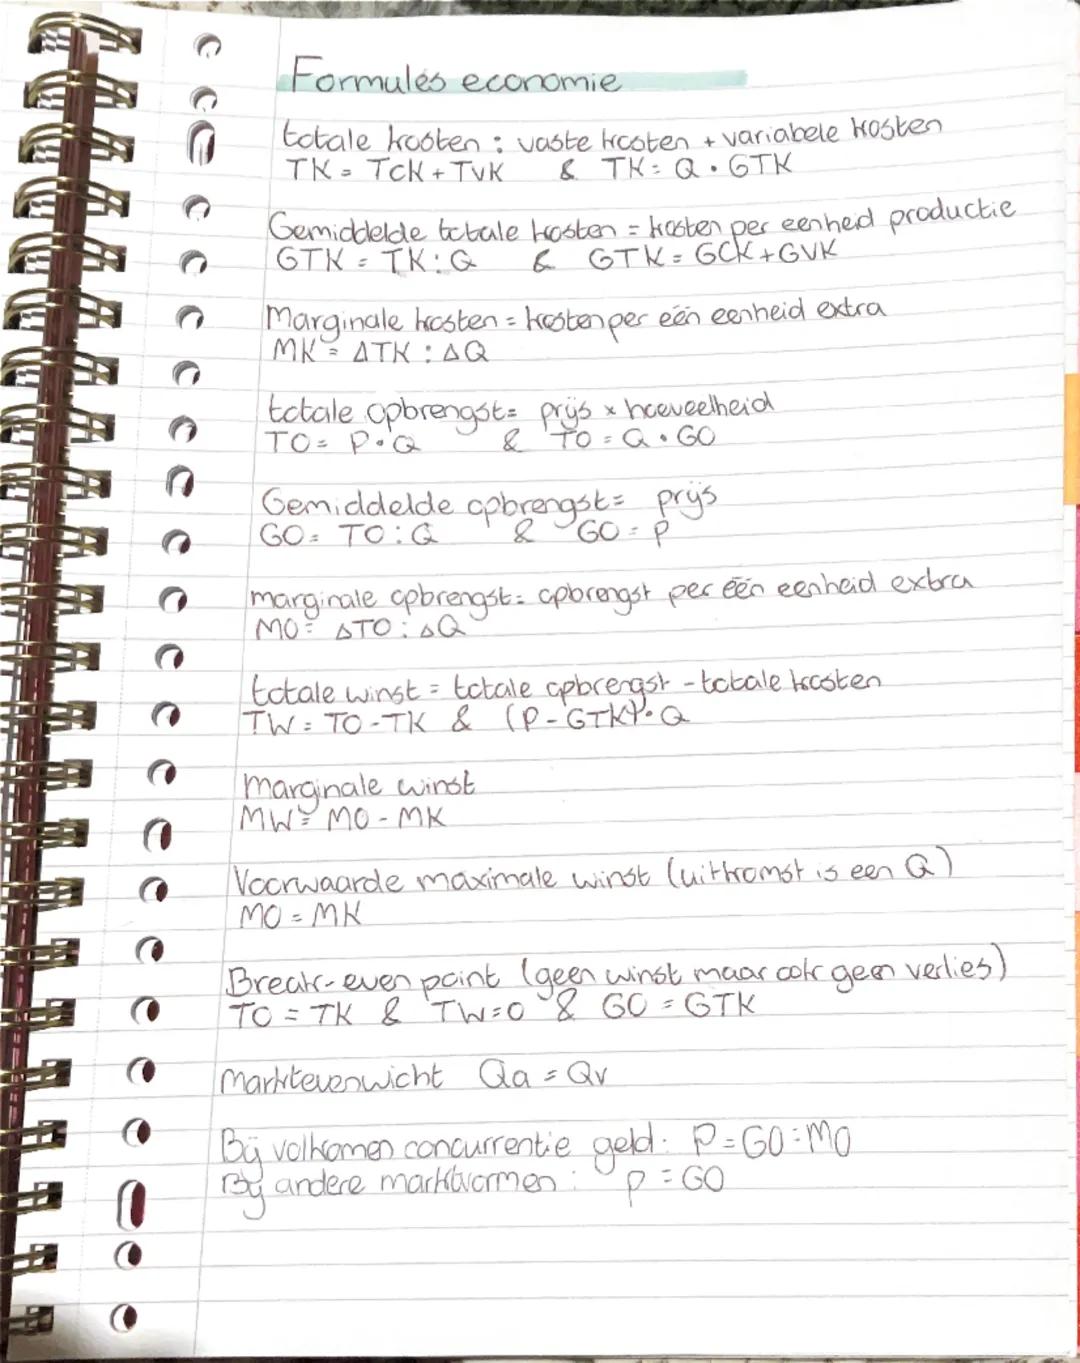 Formules economie
totale kosten : vaste kosten + variabele kosten
TK = TCK + TVK & TK = Q • GTK
Gemiddelde totale kosten = kosten per eenheid productie
GTK = TK : Q & GTK = GCK + GVK
Marginale kosten = kosten per één eenheid extra
MK = ΔTK : ΔQ
totale opbrengst = prijs x hoeveelheid
TO = P • Q & TO = Q • GO
Gemiddelde opbrengst = prijs
GO = TO : Q & GO = P
marginale opbrengst = opbrengst per één eenheid extra
MO = ΔTO : ΔQ
totale winst = totale opbrengst - totale kosten
TW = TO - TK & (P - GTK) • Q
Marginale winst
MW = MO - MK
Voorwaarde maximale winst (uitkomst is een Q)
MO = MK
Break-even point (geen winst maar ook geen verlies)
TO = TK & TW = 0 & GO = GTK
Marktevenwicht Qa = Qv
Bij volkomen concurrentie geld : P = GO = MO
Bij andere marktvormen : P = GO